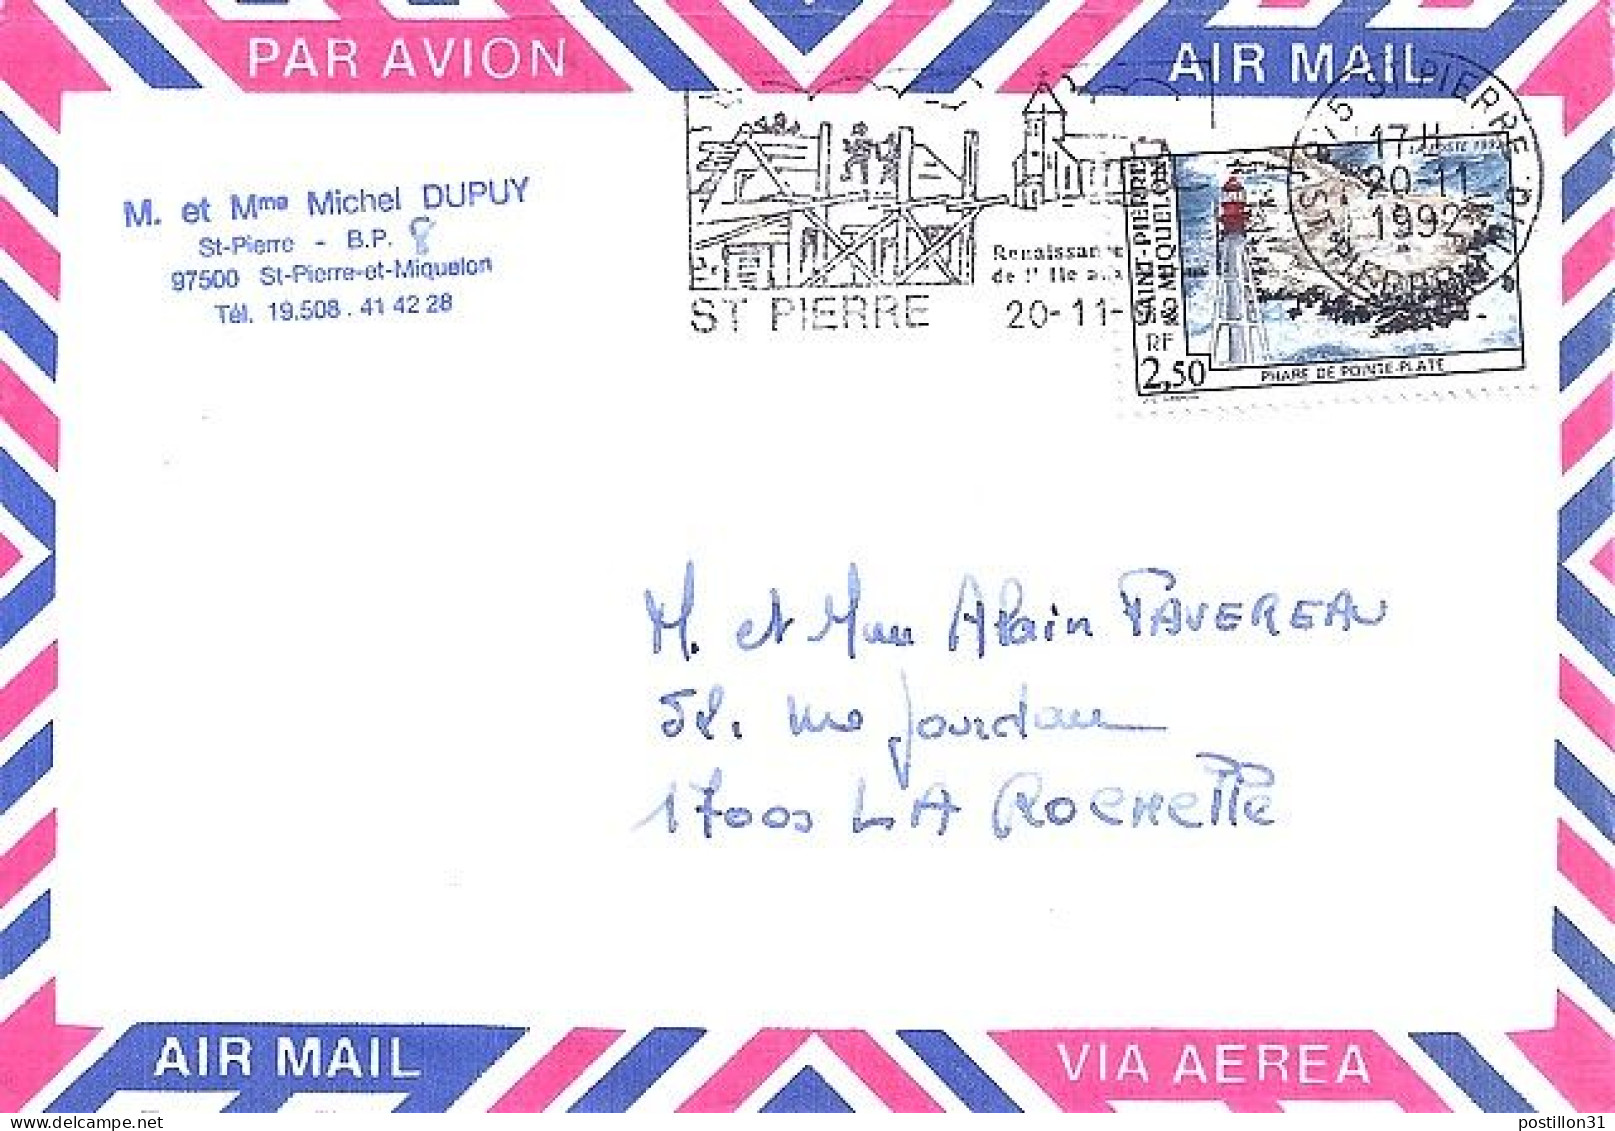 PAR AVION
AIR MAIL
M. et Mme Michel DUPUY
St-Pierre - B.P. 8
97500 St-Pierre-et-Miquelon
Tél. 19.508. 41 42 28
Renaissance
de l'Ile aux
ST PIERRE
20-11-
975 ST PIERRE
17 H
20-11
1992
ST PIERRE
LA POSTE 1992
SAINT-PIERRE
ET MIQUELON
RF
2,50
PHARE DE POINTE-PLATE
M. et Mme Alain FAVEREAU
rue Jourdan
17000 LA ROCHELLE
AIR MAIL
VIA AEREA
postillon31